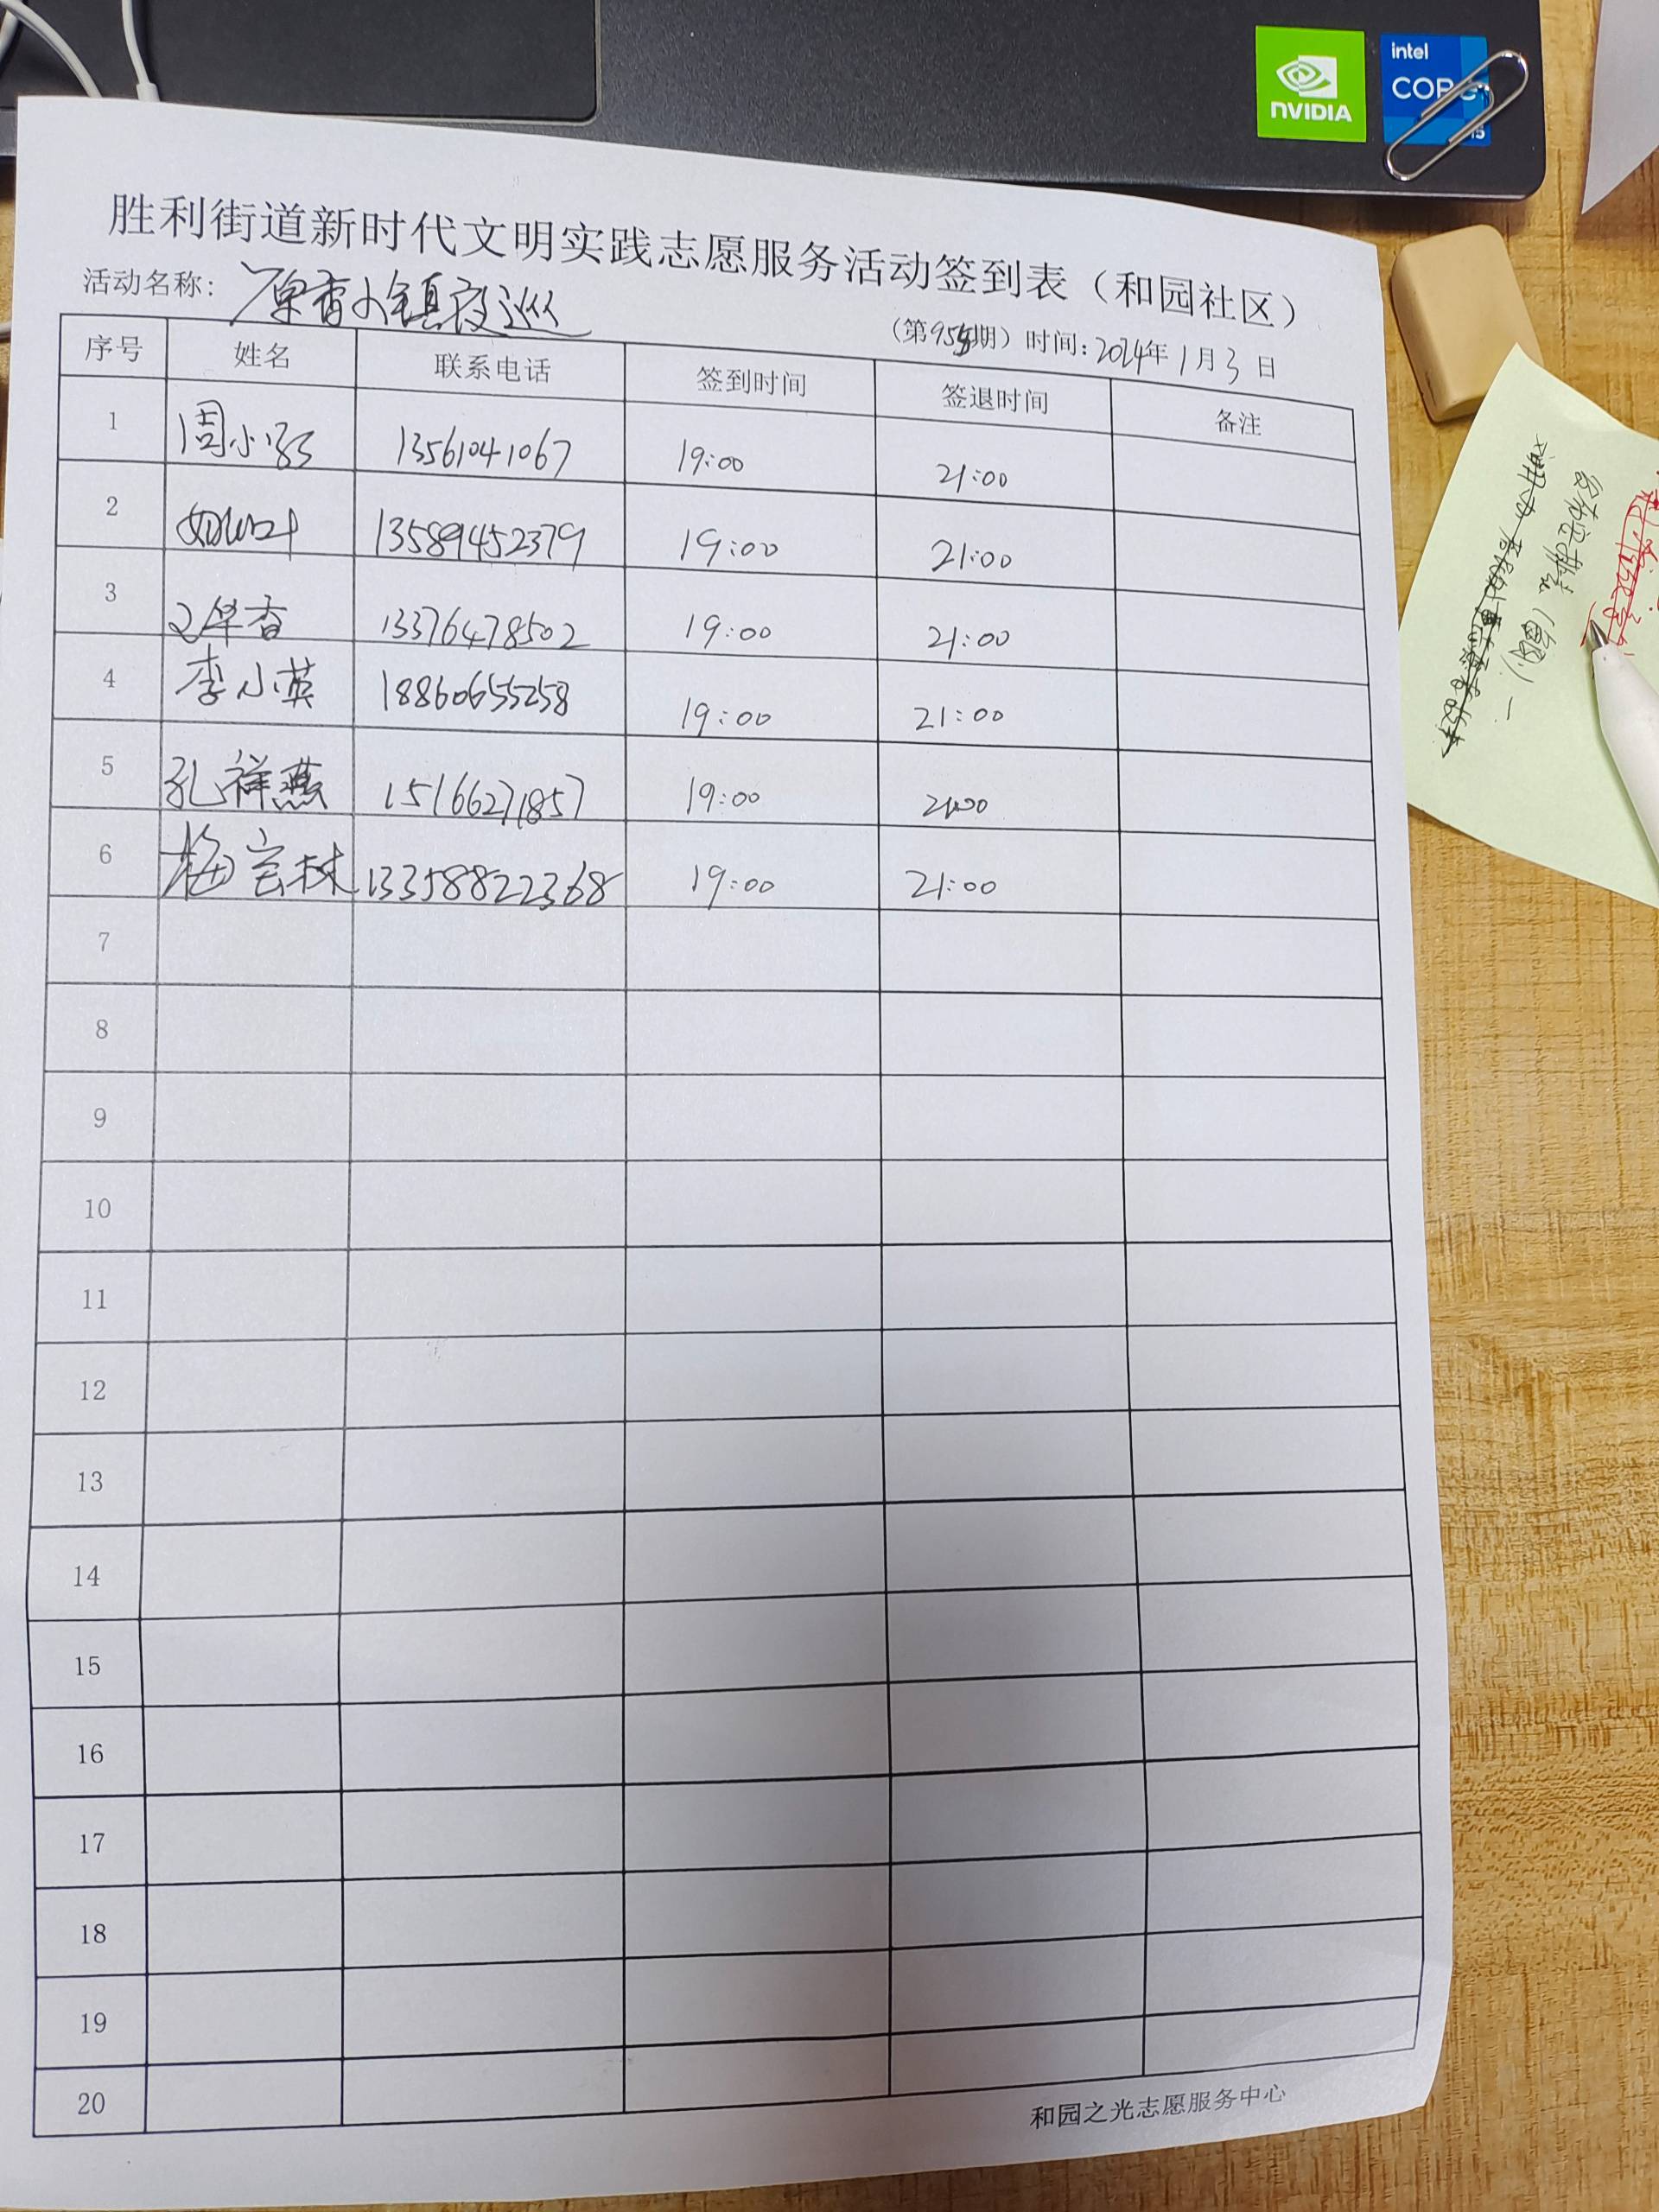 NVIDIA
intel
CORE
i5
胜利街道新时代文明实践志愿服务活动签到表（和园社区）
活动名称：香小镇夜巡
（第期）时间：2024年1月3日
序号 姓名 联系电话 签到时间 签退时间 备注
1 周小 13561041067 19:00 21:00
2 13589452379 19:00 21:00
3 香 13376478502 19:00 21:00
4 李小英 18860655258 19:00 21:00
5 孔祥燕 15166271857 19:00 21:00
6 梅宝林 13358822368 19:00 21:00
7
8
9
10
11
12
13
14
15
16
17
18
19
20
和园之光志愿服务中心